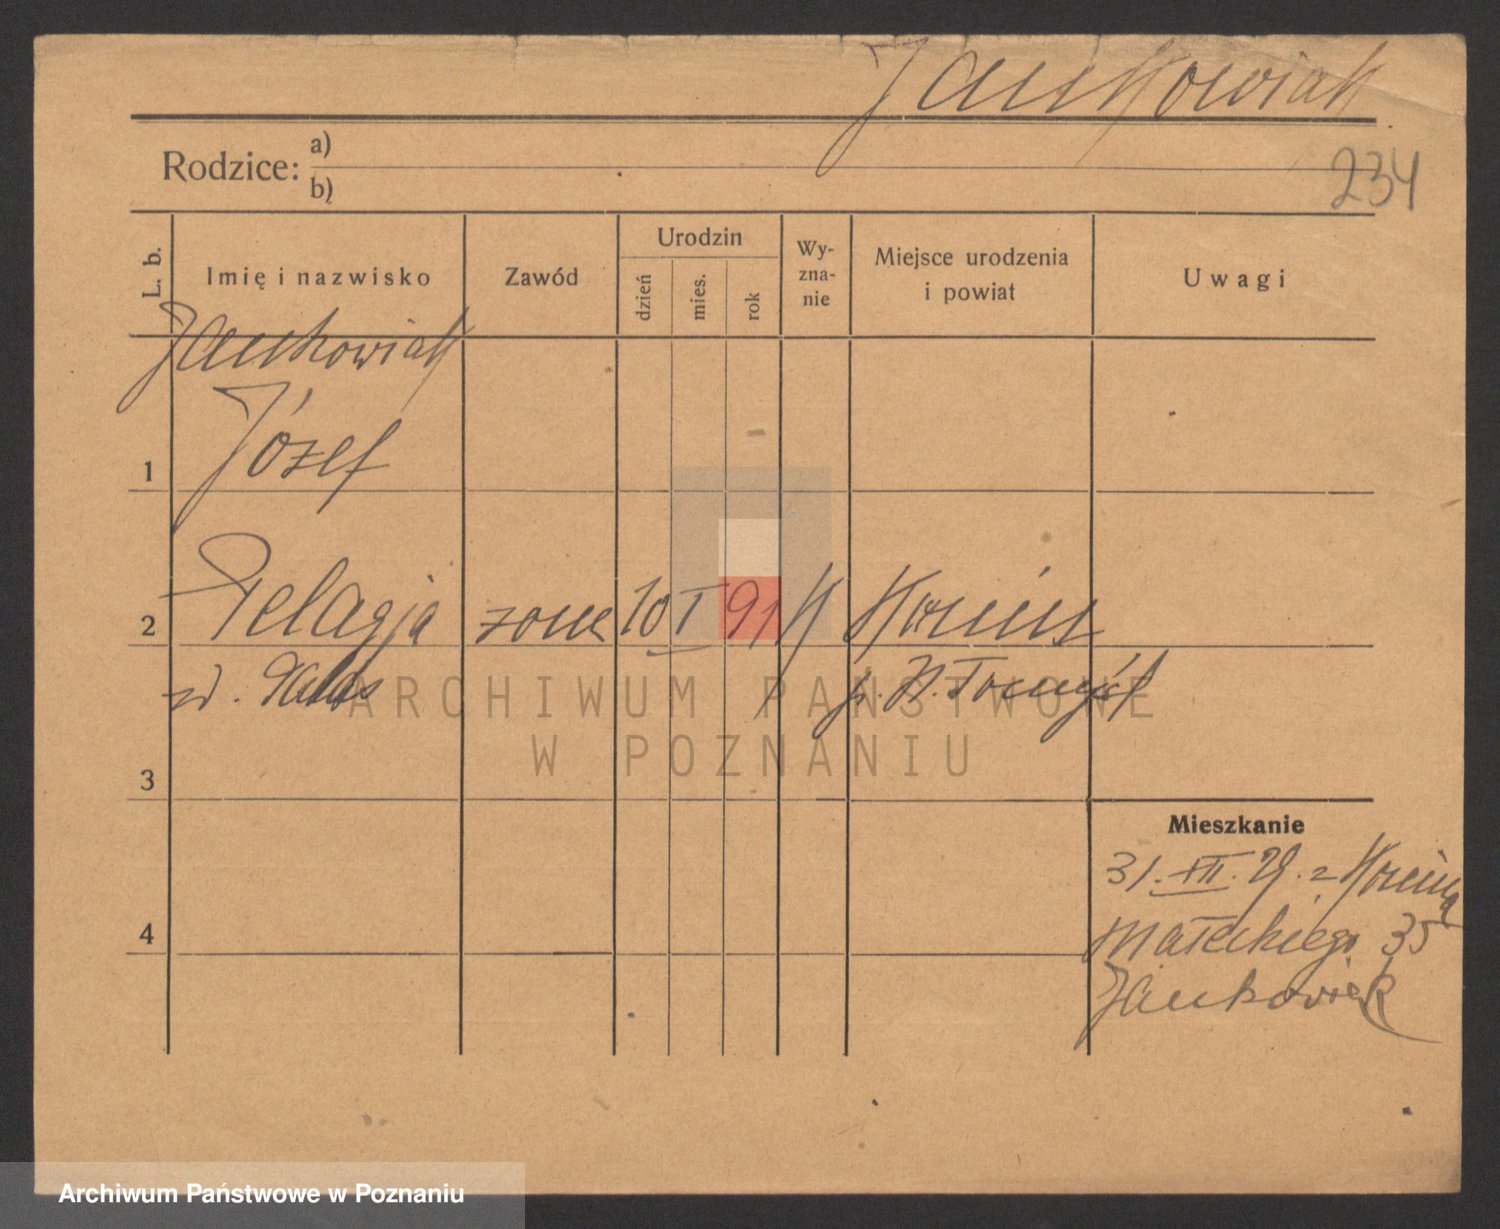 Jankowiak
Rodzice: a)
b)
234
L. b.
Imię i nazwisko
Zawód
Urodzin
dzień
mies.
rok
Wy-
zna-
nie
Miejsce urodzenia
i powiat
Uwagi
Jankowiak
1 Józef
2 Pelagja żona 10 I 91 K
p. N. Tomyśl
ARCHIWUM PAŃSTWOWE
W POZNANIU
3
Mieszkanie
31. XII. 29. z
4 Małeckiego 35
Jankowiak
Archiwum Państwowe w Poznaniu